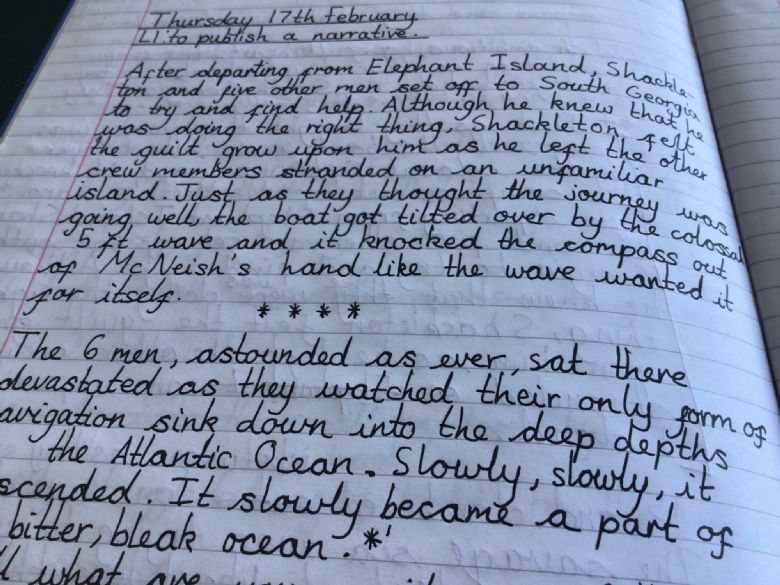 Thursday 17th February
LI: to publish a narrative.
After departing from Elephant Island, Shackle-
ton and five other men set off to South Georgia
to try and find help. Although he knew that he
was doing the right thing, Shackleton felt
the guilt grow upon him as he left the other
crew members stranded on an unfamiliar
island. Just as they thought the journey was
going well, the boat got tilted over by the colossal
5 ft wave and it knocked the compass out
of McNeish's hand like the wave wanted it
for itself.
* * * *
The 6 men, astounded as ever, sat there
devastated as they watched their only form of
avigation sink down into the deep depths
the Atlantic Ocean. Slowly, slowly, it
scended. It slowly became a part of
bitter, bleak ocean. *'
what are